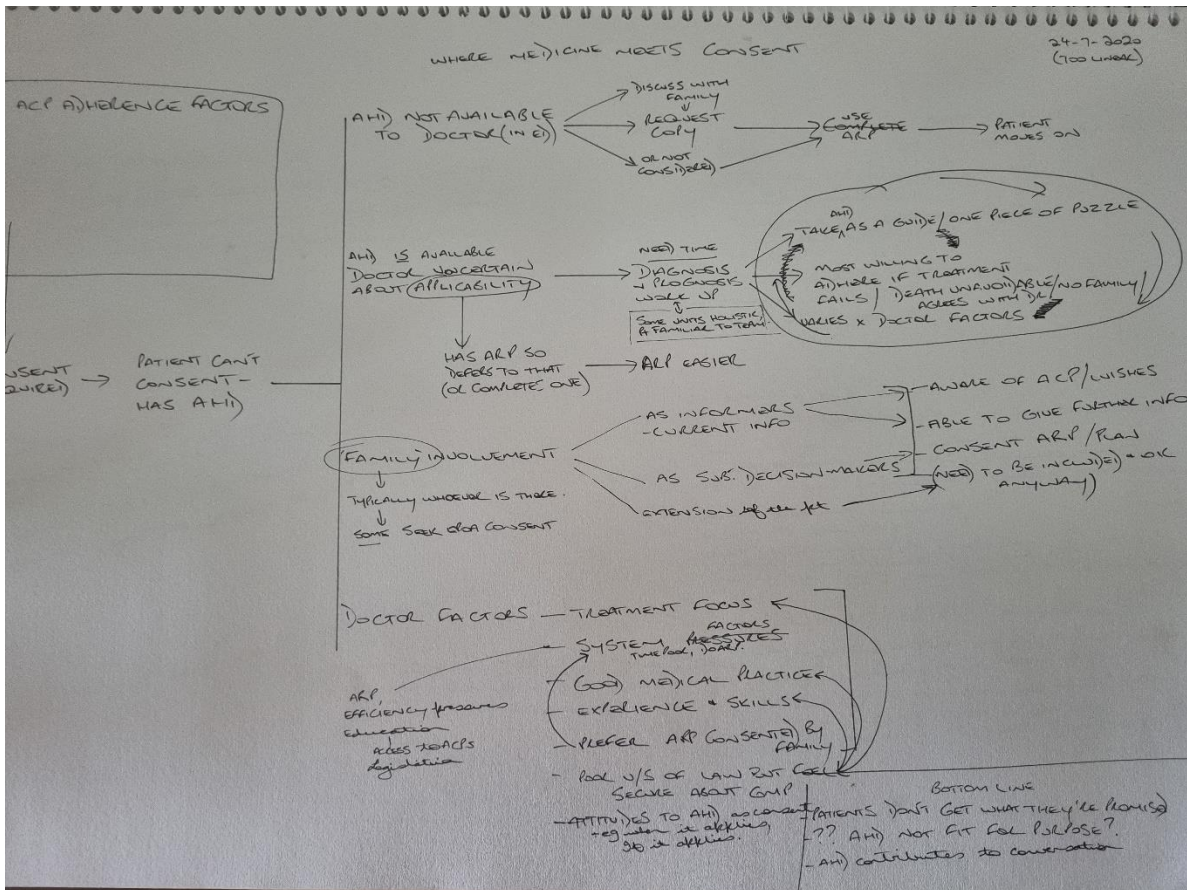 WHERE MEDICINE MEETS CONSENT
24-7-2020
(TOO LINEAR)
ACP ADHERENCE FACTORS
AHD NOT AVAILABLE
TO DOCTOR (IN ED)
DISCUSS WITH
FAMILY
REQUEST
COPY
OR NOT
CONSIDERED
USE
COMPLETE
ARP
PATIENT
MOVES ON
AHD IS AVAILABLE
DOCTOR UNCERTAIN
ABOUT APPLICABILITY
NEED TIME
DIAGNOSIS
+ PROGNOSIS
WORK UP
SOME UNITS HOLISTIC,
FAMILIAR TO TEAM
AHD
TAKE AS A GUIDE/ONE PIECE OF PUZZLE
MOST WILLING TO
ADHERE IF TREATMENT
FAILS / DEATH UNAVOIDABLE/NO FAMILY/
AGREES WITH DR/
VARIES x DOCTOR FACTORS
HAS ARP SO
DEFERS TO THAT
(OR COMPLETE ONE)
ARP EASIER
NSENT
QUIRED
PATIENT CAN'T
CONSENT -
HAS AHD
'FAMILY' INVOLVEMENT
TYPICALLY WHOEVER IS THERE.
SOME SEEK EPOA CONSENT
AS INFORMERS
- CURRENT INFO
AS SUB. DECISION-MAKERS
EXTENSION of the pt
- AWARE OF ACP/WISHES
- ABLE TO GIVE FURTHER INFO
- CONSENT ARP/PLAN
(NEED TO BE INCLUDED
ANYWAY)
DOCTOR FACTORS - TREATMENT FOCUS
- SYSTEM PRESSURES
FACTORS
TIME POOR, DO ARP.
- GOOD MEDICAL PRACTICE
- EXPERIENCE + SKILLS
- PREFER ARP CONSENTED BY
FAMILY
- POOR U/S OF LAW BUT FEEL
SECURE ABOUT GMP
- ATTITUDES TO AHD as consent
- eg when it applies,
if it applies.
ARP,
EFFICIENCY pressures
Education
ACCESS to ACPs
Legislation
BOTTOM LINE
- PATIENTS DON'T GET WHAT THEY'RE PROMISED
- ?? AHD NOT FIT FOR PURPOSE?
- AHD contributes to conversation